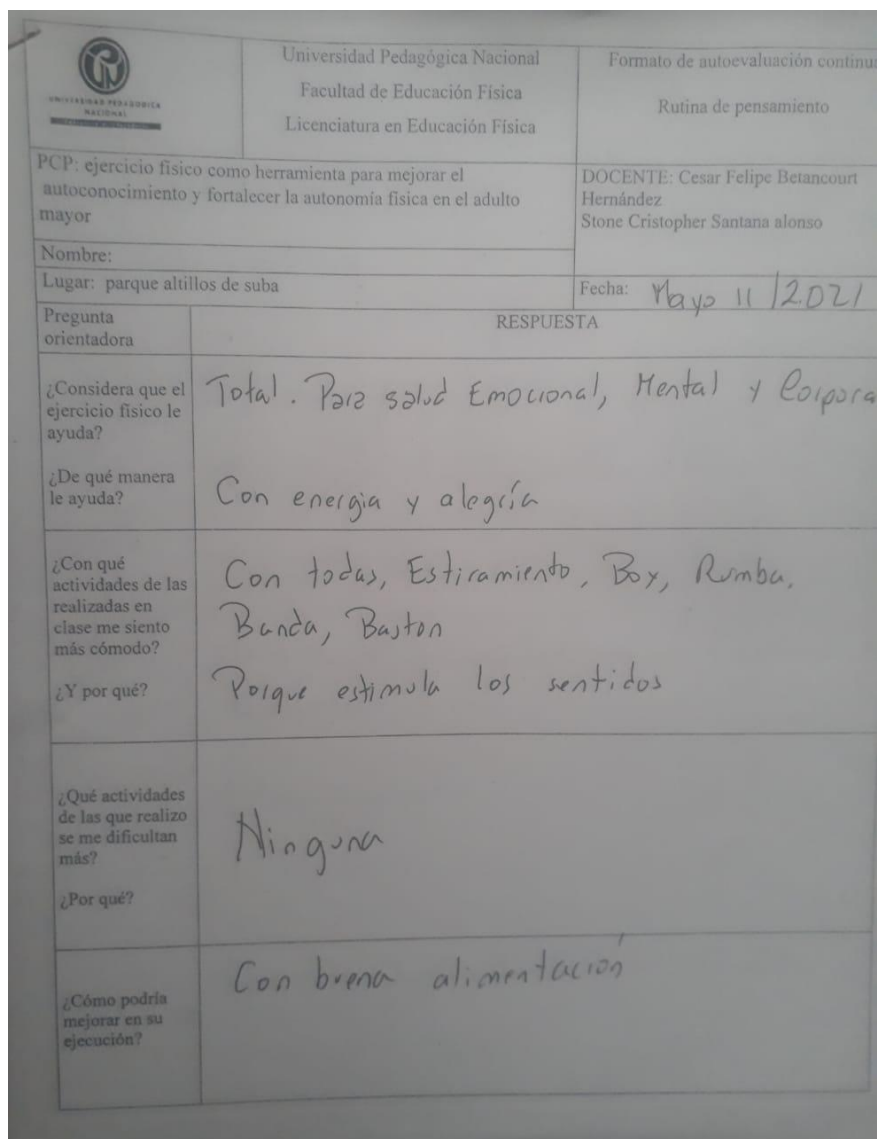 UNIVERSIDAD PEDAGOGICA
NACIONAL
Universidad Pedagógica Nacional
Facultad de Educación Física
Licenciatura en Educación Física
Formato de autoevaluación continu
Rutina de pensamiento
PCP: ejercicio físico como herramienta para mejorar el
autoconocimiento y fortalecer la autonomía física en el adulto
mayor
DOCENTE: Cesar Felipe Betancourt
Hernández
Stone Cristopher Santana alonso
Nombre:
Lugar: parque altillos de suba
Fecha: Mayo 11 / 2021
Pregunta
orientadora
RESPUESTA
¿Considera que el
ejercicio físico le
ayuda?
Total. Para salud Emocional, Mental y Corpora
¿De qué manera
le ayuda?
Con energia y alegría
¿Con qué
actividades de las
realizadas en
clase me siento
más cómodo?
Con todas, Estiramiento, Box, Rumba,
Banda, Baston
¿Y por qué?
Porque estimula los sentidos
¿Qué actividades
de las que realizo
se me dificultan
más?
Ninguna
¿Por qué?
¿Cómo podría
mejorar en su
ejecución?
Con buena alimentación